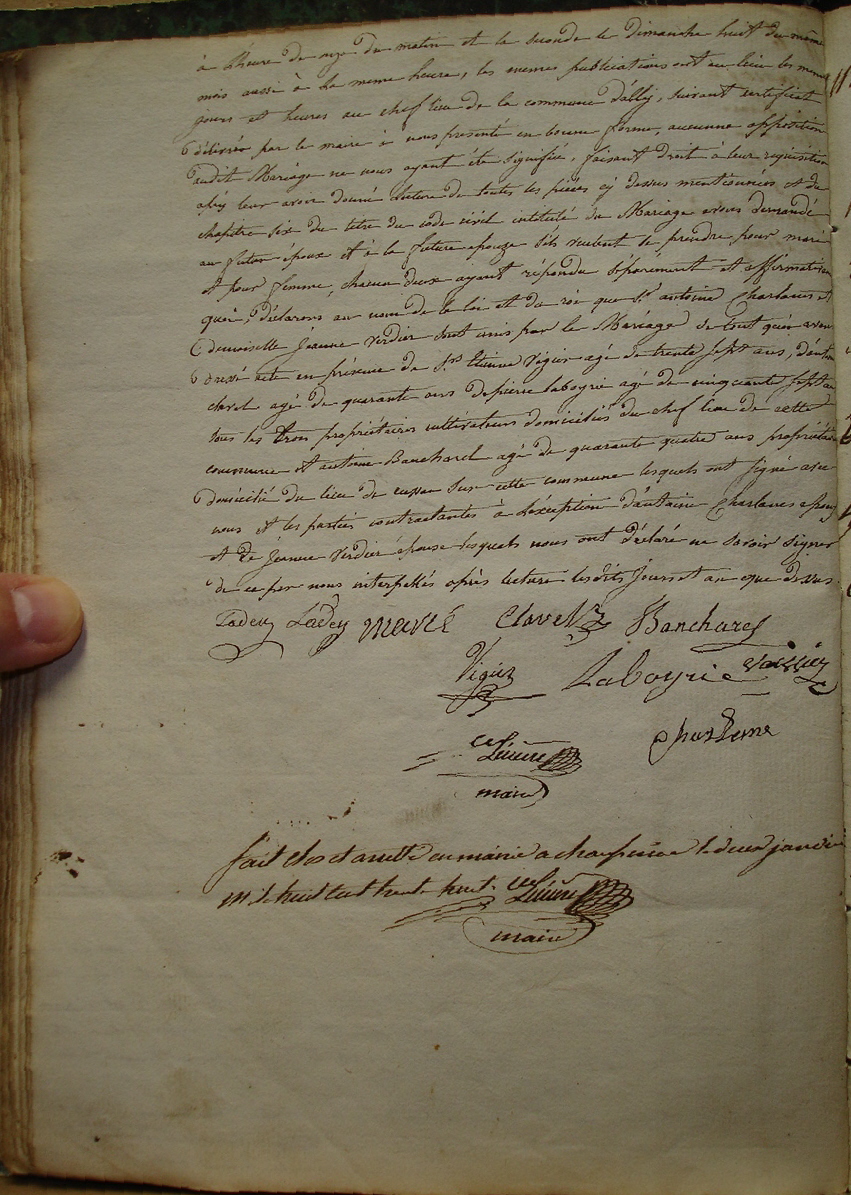 à l'heure de onze du matin et la seconde le dimanche huit du même
mois aussi à la meme heure, les memes publications ont eu lieu les memes
jours et heures au chef lieu de la commune d'ally, suivant certificat
délivrée par le maire à nous presenté en bonne forme, aucunne opposition
audit Mariage ne nous ayant été signifiée, faisant droit à leur réquisition
après leur avoir donné lecture de toutes les pièces cy dessus mentionnées et du
chapitre six du titre du code civil intitulé du Mariage avons demandé
au futur époux et à la future epouze s'ils veulent se prendre pour mari
et pour femme, chacun deux ayant répondu séparement et affirmativem
quoi, déclarons au nom de la loi et du roi que Sr antoine Charlanes et
demoiselle Jeanne Verdier sont unis par le Mariage de tout quoi avons
dressé acte en présence de Srs Etienne Vigier agé de trente sept ans,
clavel agé de quarante ans de pierre laboyrie agé de cinquante sept ans
tous les trois propriétaires cultivateurs domiciliés du chef lieu de cette
commune et antoine Bancharel agé de quarante quatre ans propriétaire
domicilié du lieu de sur cette commune lesquels ont signé avec
nous et les parties contractantes à l'exception d'antoine Charlanes epoux
et de Jeanne Verdier épouse lesquels nous ont déclaré ne savoir signer
de ce par nous interpellés après lecture lesdits Jours et an que dessus.
Clavel Bancharel
Vigier Laboyrie
maire
fait clos et arretté en mairie a le deux janvier
mil huit cent trente huit.
maire